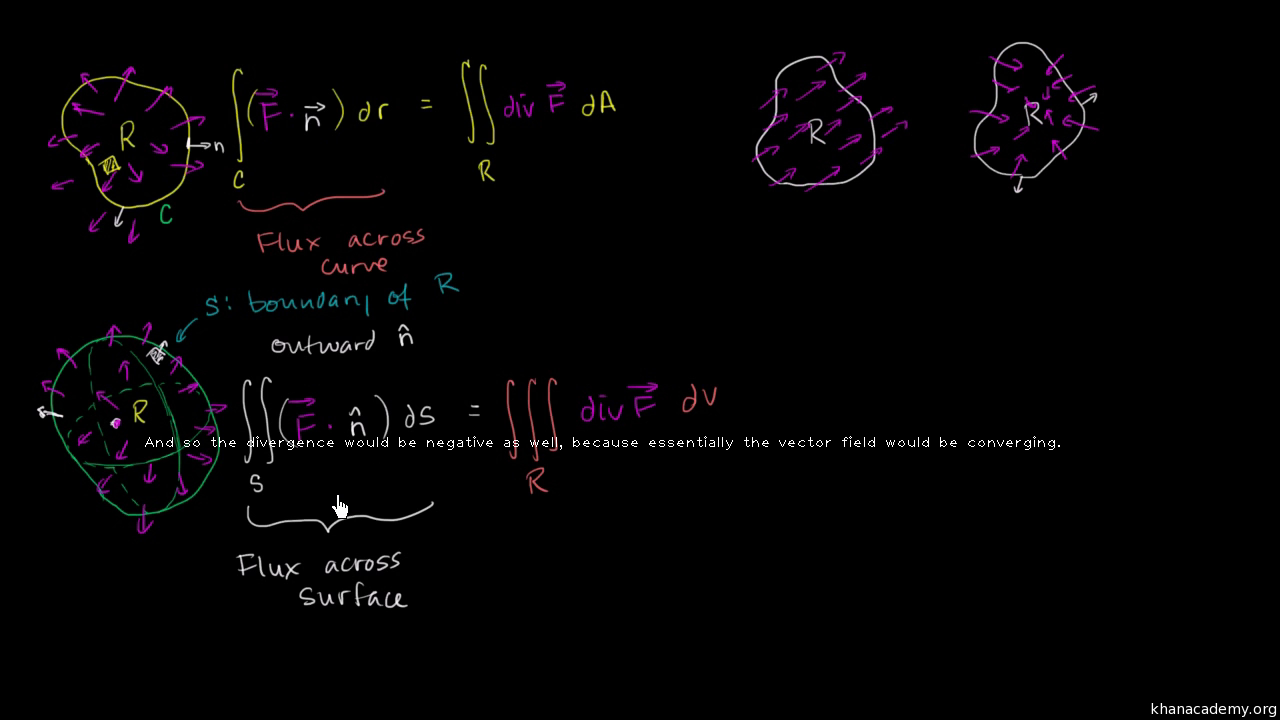 R
n
C
∫_C (F⃗ · n⃗) dr = ∬_R div F⃗ dA
Flux across
curve
R
R
S: boundary of R
outward n̂
R
∬_S (F⃗ · n̂) dS = ∭_R div F⃗ dV
And so the divergence would be negative as well, because essentially the vector field would be converging.
Flux across
surface
khanacademy.org